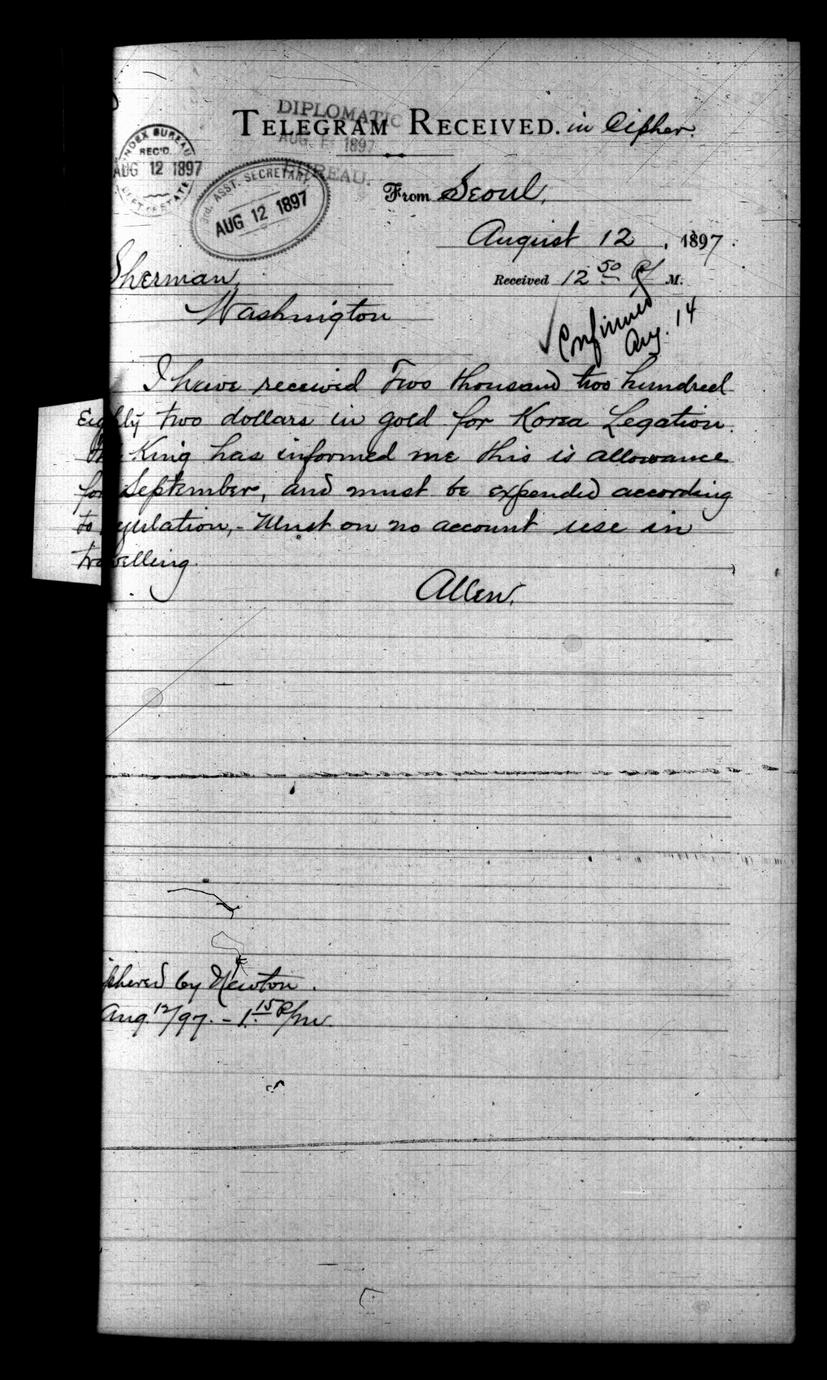 DIPLOMATIC
AUG 1897
BUREAU.
TELEGRAM RECEIVED. in Cipher.
INDEX BUREAU
REC'D
AUG 12 1897
DEPT OF STATE
3rd ASST. SECRETARY
AUG 12 1897
From Seoul,
August 12, 1897.
Sherman,
Received 12 50 P/ M.
Washington
Confirmed
Aug. 14
I have received Two thousand two hundred
Eighty two dollars in gold for Korea Legation.
The King has informed me this is allowance
for September, and must be expended according
to regulation,- Must on no account use in
travelling.
Allen.
phered by Newton.
Aug. 12/97. - 1. 15 P/m.